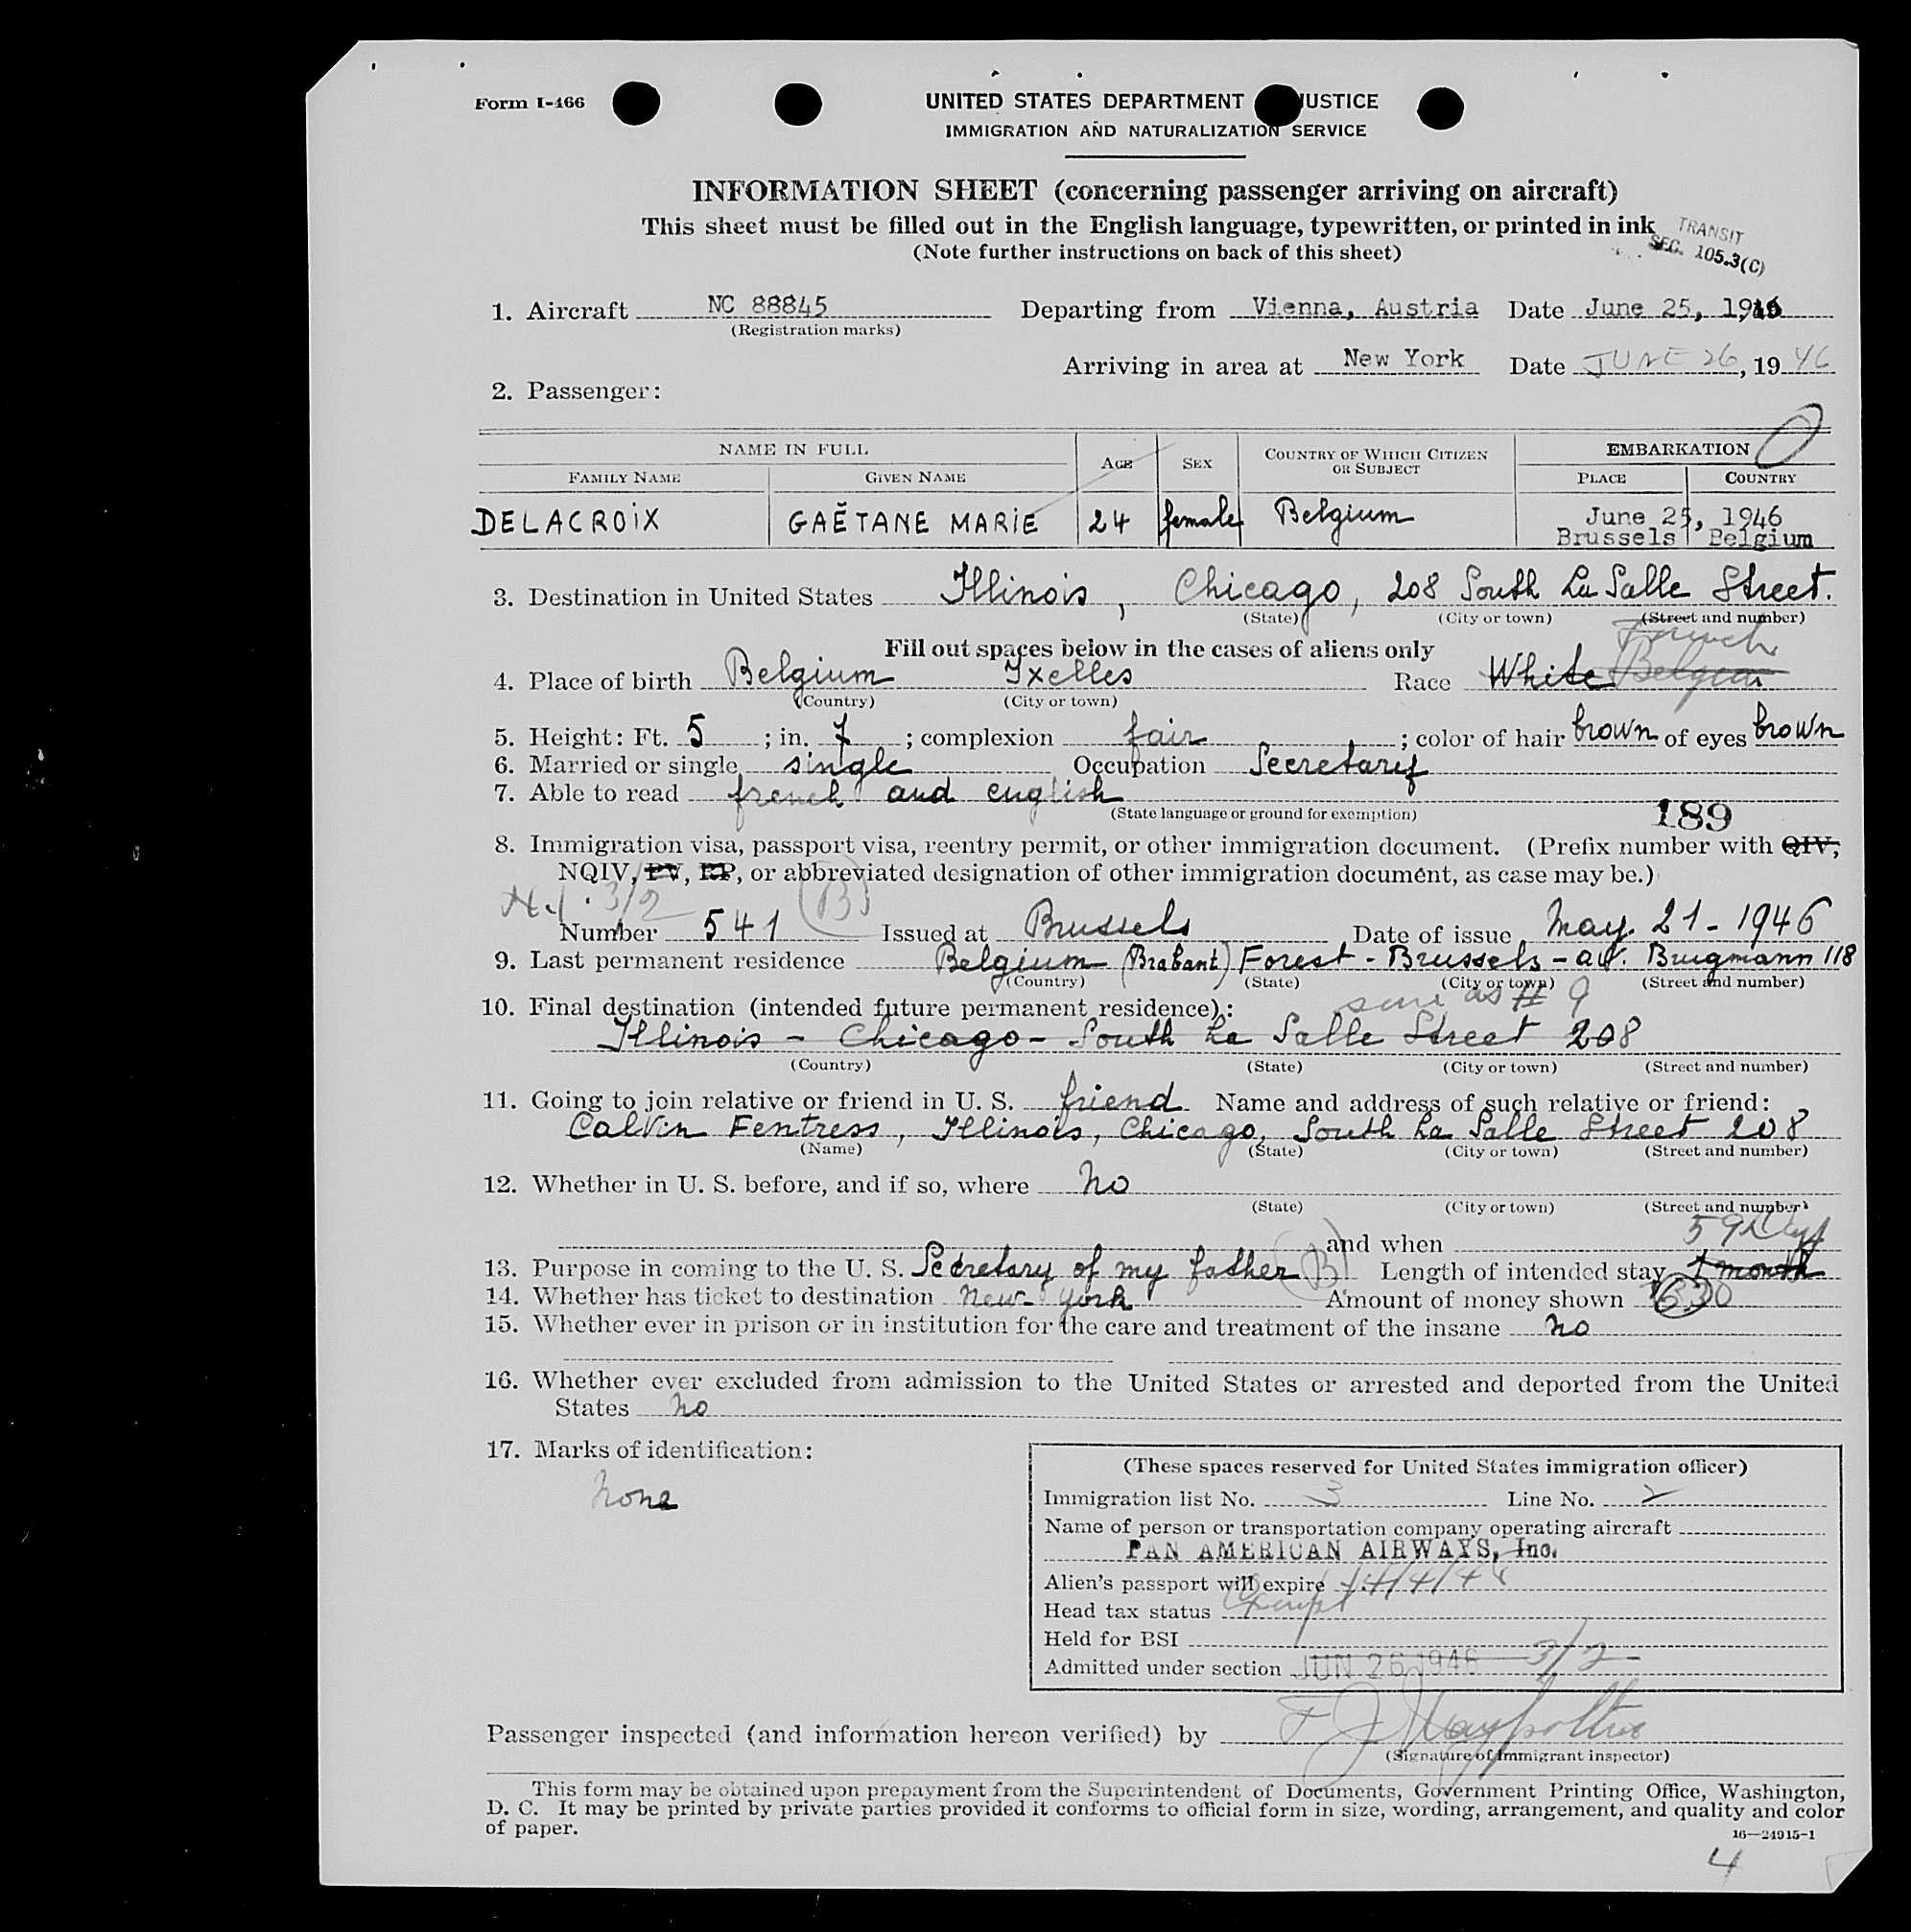 Form I-466
UNITED STATES DEPARTMENT JUSTICE
IMMIGRATION AND NATURALIZATION SERVICE
INFORMATION SHEET (concerning passenger arriving on aircraft)
This sheet must be filled out in the English language, typewritten, or printed in ink
(Note further instructions on back of this sheet)
TRANSIT
SEC. 105.3(C)
1. Aircraft NC 88845 Departing from Vienna, Austria Date June 25, 1946
(Registration marks)
Arriving in area at New York Date JUNE 26, 1946
2. Passenger:
NAME IN FULL AGE SEX COUNTRY OF WHICH CITIZEN OR SUBJECT EMBARKATION
FAMILY NAME GIVEN NAME PLACE COUNTRY
DELACROIX GAËTANE MARIE 24 female Belgium June 25, 1946
Brussels Belgium
3. Destination in United States Illinois, Chicago, 208 South La Salle Street.
(State) (City or town) (Street and number)
Fill out spaces below in the cases of aliens only
French
4. Place of birth Belgium Ixelles Race White Belgian
(Country) (City or town)
5. Height: Ft. 5 ; in. 7 ; complexion fair ; color of hair brown of eyes brown
6. Married or single single Occupation Secretary
7. Able to read french and english
(State language or ground for exemption)
189
8. Immigration visa, passport visa, reentry permit, or other immigration document. (Prefix number with QIV,
NQIV, PV, RP, or abbreviated designation of other immigration document, as case may be.)
3/2 (B)
Number 541 Issued at Brussels Date of issue May. 21 - 1946
9. Last permanent residence Belgium (Brabant) Forest - Brussels - av. Brugmann 118
(Country) (State) (City or town) (Street and number)
10. Final destination (intended future permanent residence): same as # 9
Illinois - Chicago - South La Salle Street 208
(Country) (State) (City or town) (Street and number)
11. Going to join relative or friend in U. S. friend Name and address of such relative or friend:
Calvin Fentress, Illinois, Chicago, South La Salle Street 208
(Name) (State) (City or town) (Street and number)
12. Whether in U. S. before, and if so, where no
(State) (City or town) (Street and number)
and when
59 Days
13. Purpose in coming to the U. S. Secretary of my father (B) Length of intended stay 1 month
14. Whether has ticket to destination New-York Amount of money shown
15. Whether ever in prison or in institution for the care and treatment of the insane no
16. Whether ever excluded from admission to the United States or arrested and deported from the United
States no
17. Marks of identification:
none
(These spaces reserved for United States immigration officer)
Immigration list No. 3 Line No. 2
Name of person or transportation company operating aircraft
PAN AMERICAN AIRWAYS, Inc.
Alien's passport will expire
Head tax status Exempt
Held for BSI
Admitted under section JUN 26 1946 3/2
Passenger inspected (and information hereon verified) by
(Signature of Immigrant inspector)
This form may be obtained upon prepayment from the Superintendent of Documents, Government Printing Office, Washington,
D. C. It may be printed by private parties provided it conforms to official form in size, wording, arrangement, and quality and color
of paper.
16—24915-1
4